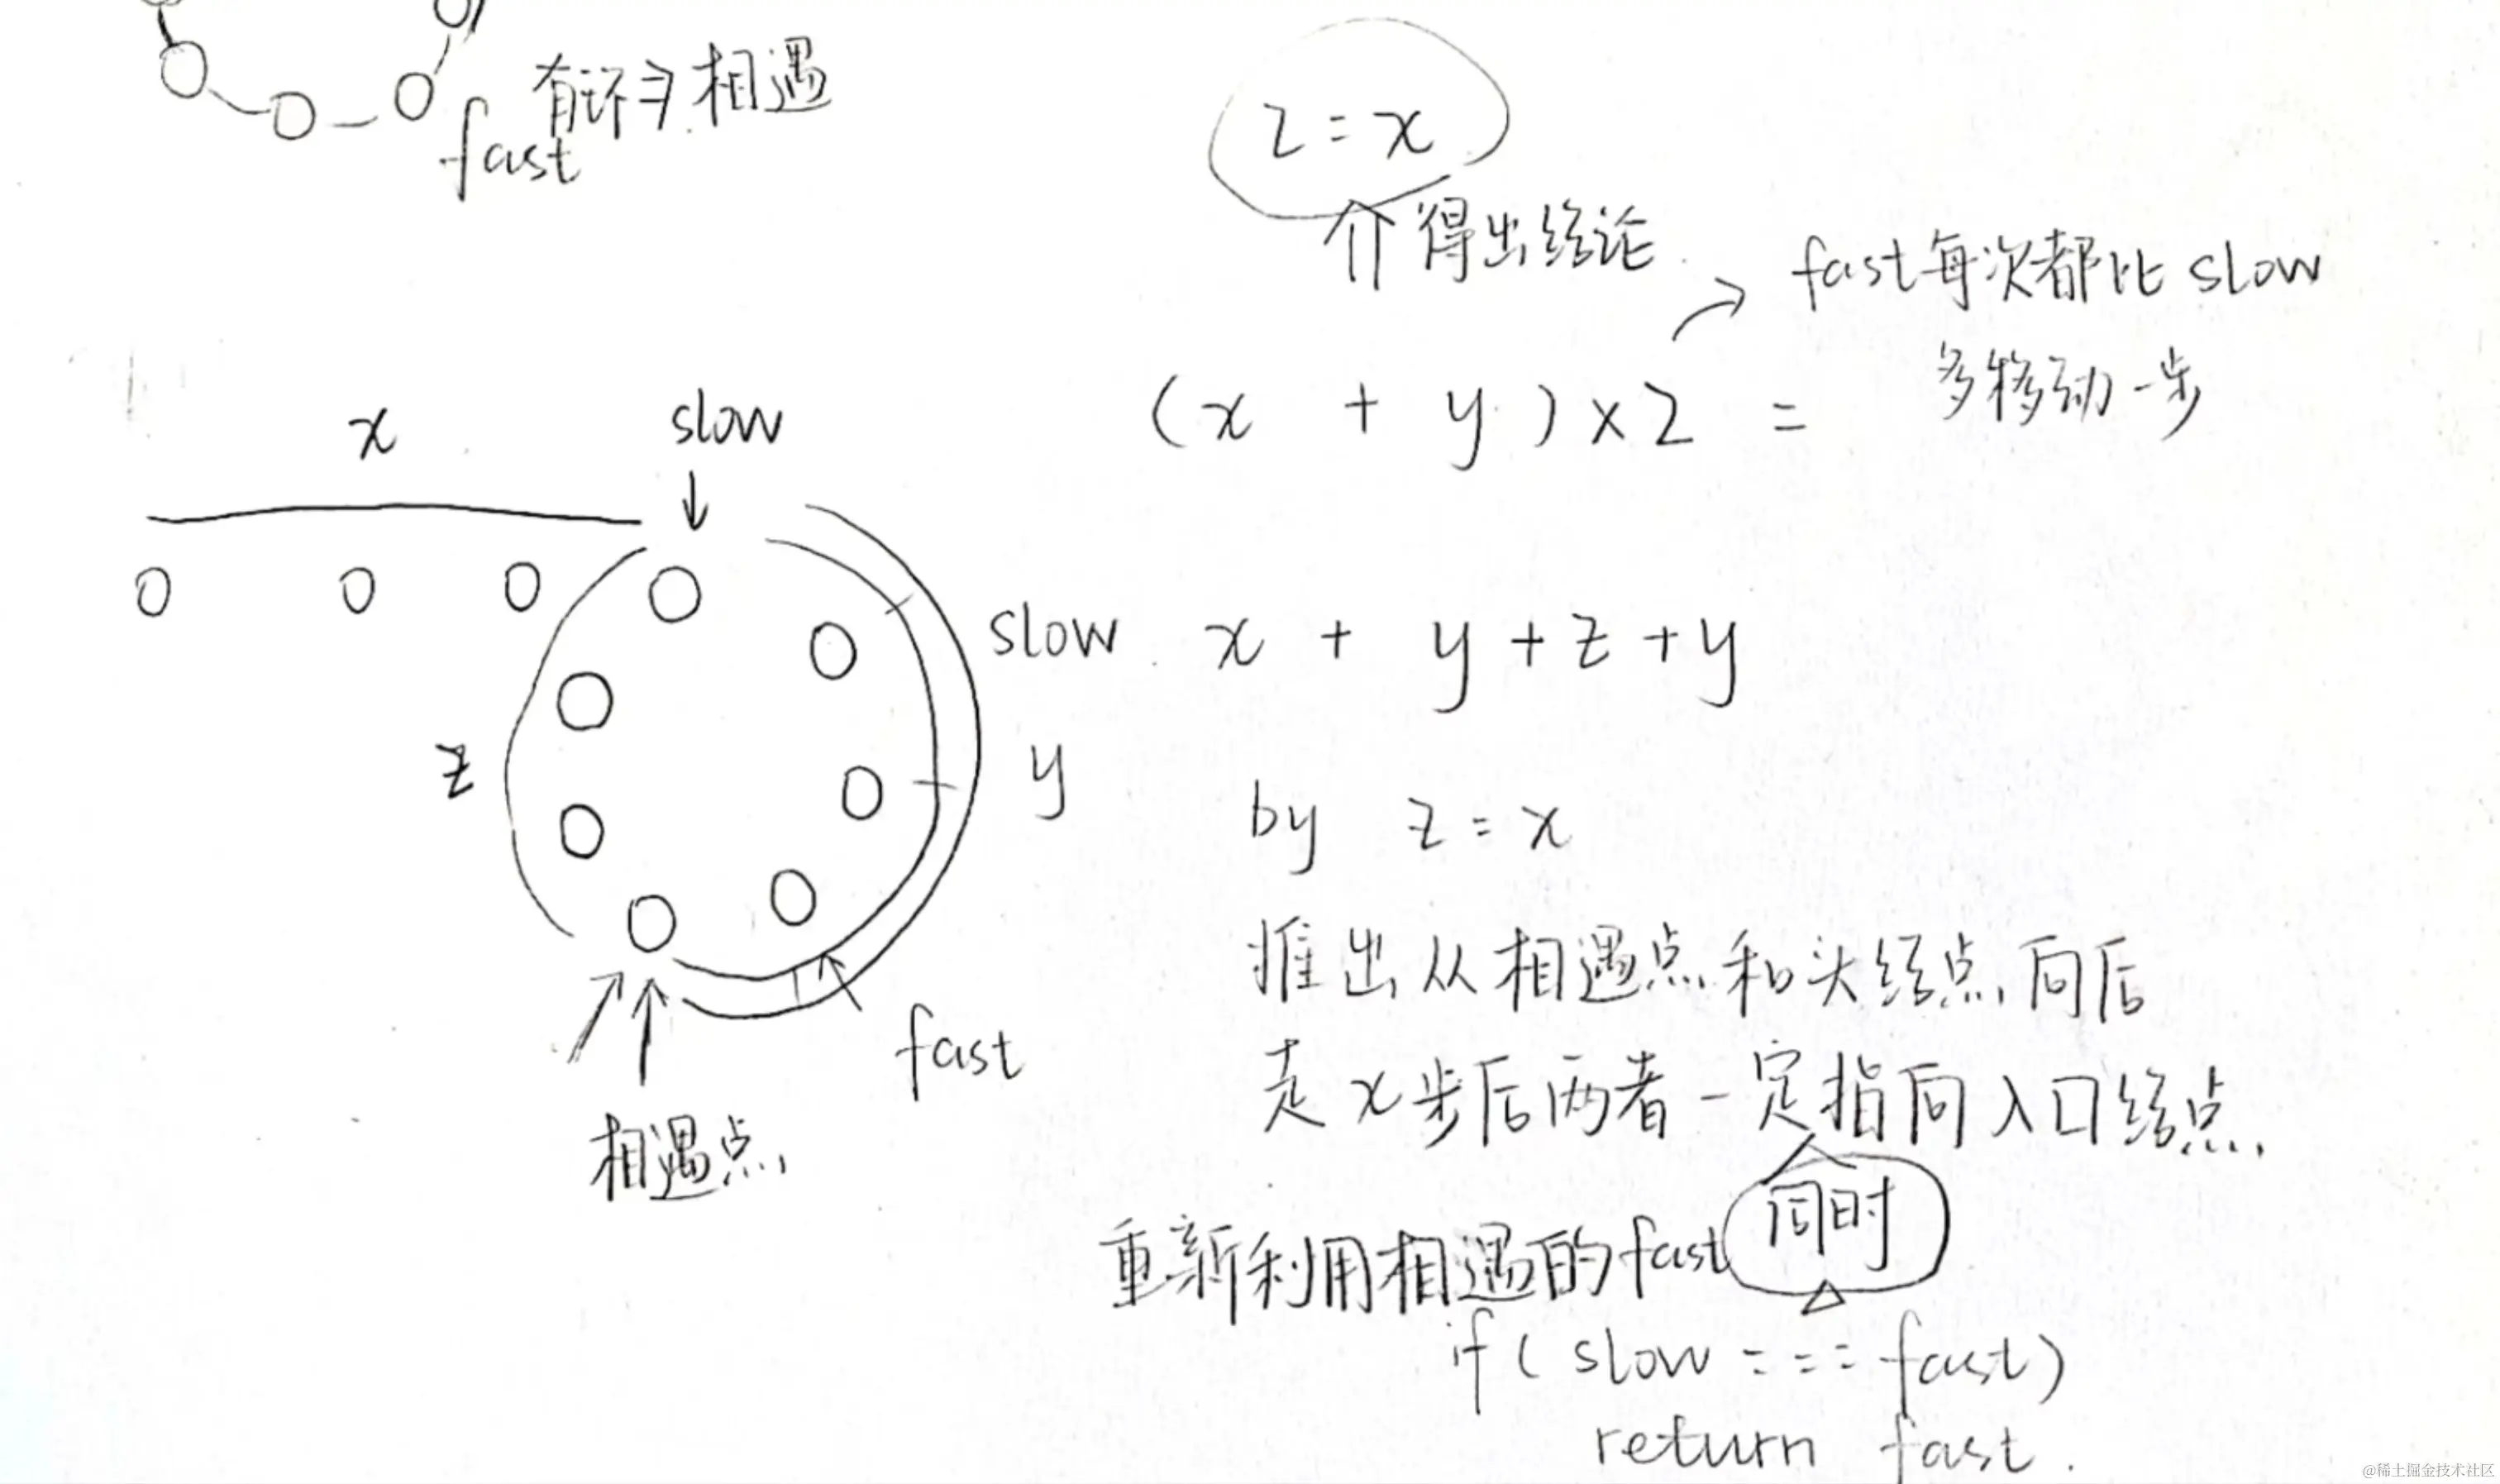 有环⇒相遇
fast
z = x
⇑ 得出结论
fast每次都比 slow
多移动一步
(x + y) × 2 =
x
slow
slow x + y + z + y
z
y
by z = x
推出从相遇点和头结点向后
走x步后两者一定指向入口结点
fast
相遇点
同时
重新利用相遇的fast
if ( slow === fast)
return fast.
@稀土掘金技术社区